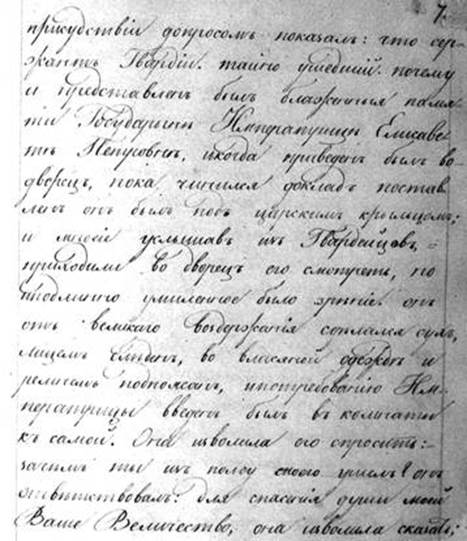 7.
присудствіи допросомъ показалъ: что сер-
жантъ Гвардіи. тайно ушедшій. почему
и представленъ былъ блаженныя памя
ти Государыни Императрицы Елисаве
тъ Петровнъ, икогда приведенъ былъ во
дворецъ, пока, чинился докладъ постав
ленъ онъ былъ подъ царскимъ крыльцомъ;
и многіе услышавъ изъ Гвардейцовъ, =
приходили во дворецъ его смотреть, по
умиланное было зрѣніе. онъ
отъ великаго воздержанія сохъ,
лицемъ блѣденъ, во власяной одеждѣ и
ремнемъ подпоясанъ, ипотребованію Им-
ператрицы введенъ былъ въ комнаты
къ самой. Она изволила его спросить:
зачемъ ты изъ полку своего ушелъ? онъ
отвѣтствовалъ: для спасенія души моей
Ваше Величество, она изволила сказать;